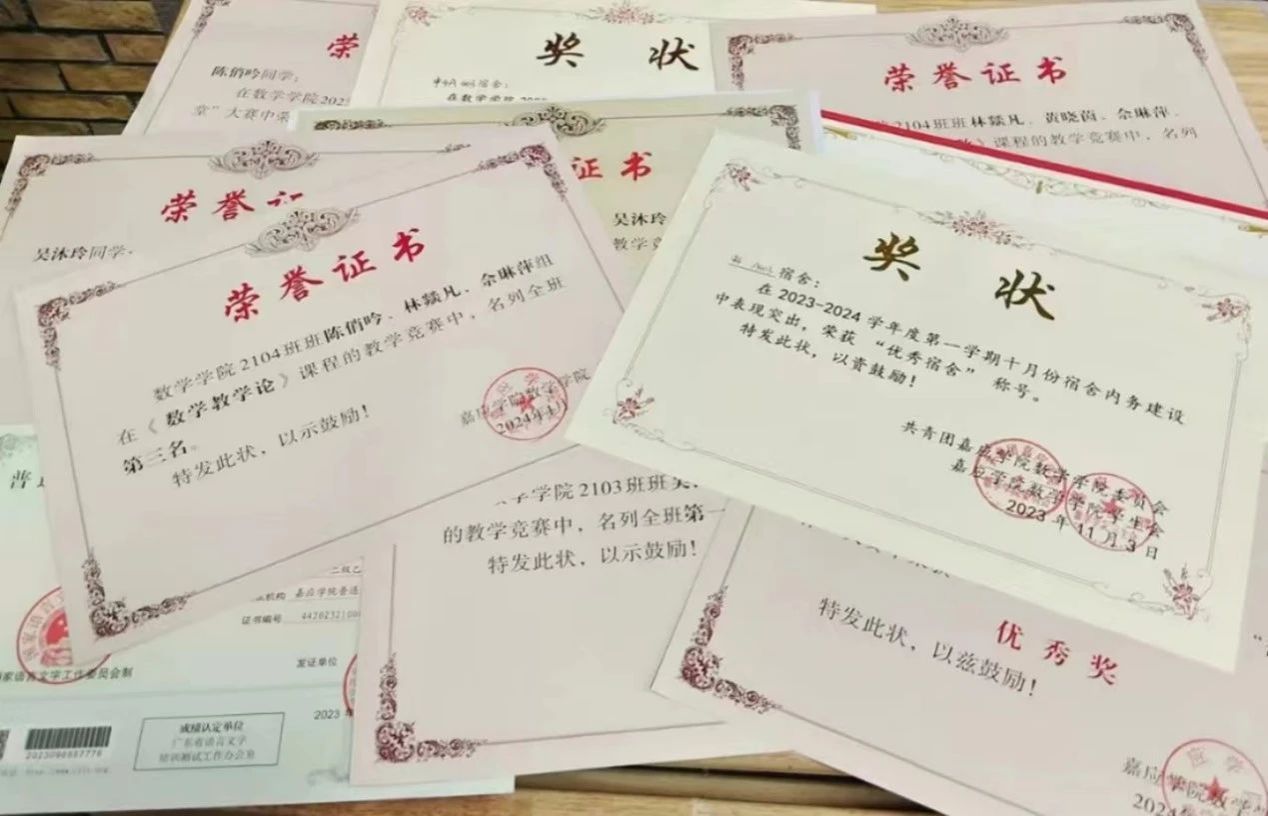 荣
陈俏吟同学：
在数学学院202
堂”大赛中荣
奖 状
宿舍：
在数学学院
荣誉证书
2104班班林燚凡、黄晓茵、佘琳萍、
》课程的教学竞赛中，名列
荣誉证
吴沐玲同学
证书
吴沐玲
教学竞
荣誉证书
数学学院2104班班陈俏吟、林燚凡、佘琳萍组
在《数学教学论》课程的教学竞赛中，名列全班
第三名。
特发此状，以示鼓励！
嘉应学院数学学院
2024年1月
奖 状
宿舍：
在2023-2024学年度第一学期十月份宿舍内务建设
中表现突出，荣获“优秀宿舍”称号。
特发此状，以资鼓励！
共青团嘉应学院数学学院委员会
嘉应学院数学学院学生会
2023年11月3日
学学院2103班班吴
的教学竞赛中，名列全班第一
特发此状，以示鼓励！
优秀奖
特发此状，以兹鼓励！
嘉应学院数学
2024
普
二级乙
机构 嘉应学院普通
证书编号
发证单位
家语言文字工作委员会制
2023年
成绩认定单位
广东省语言文字
培训测试工作办公室